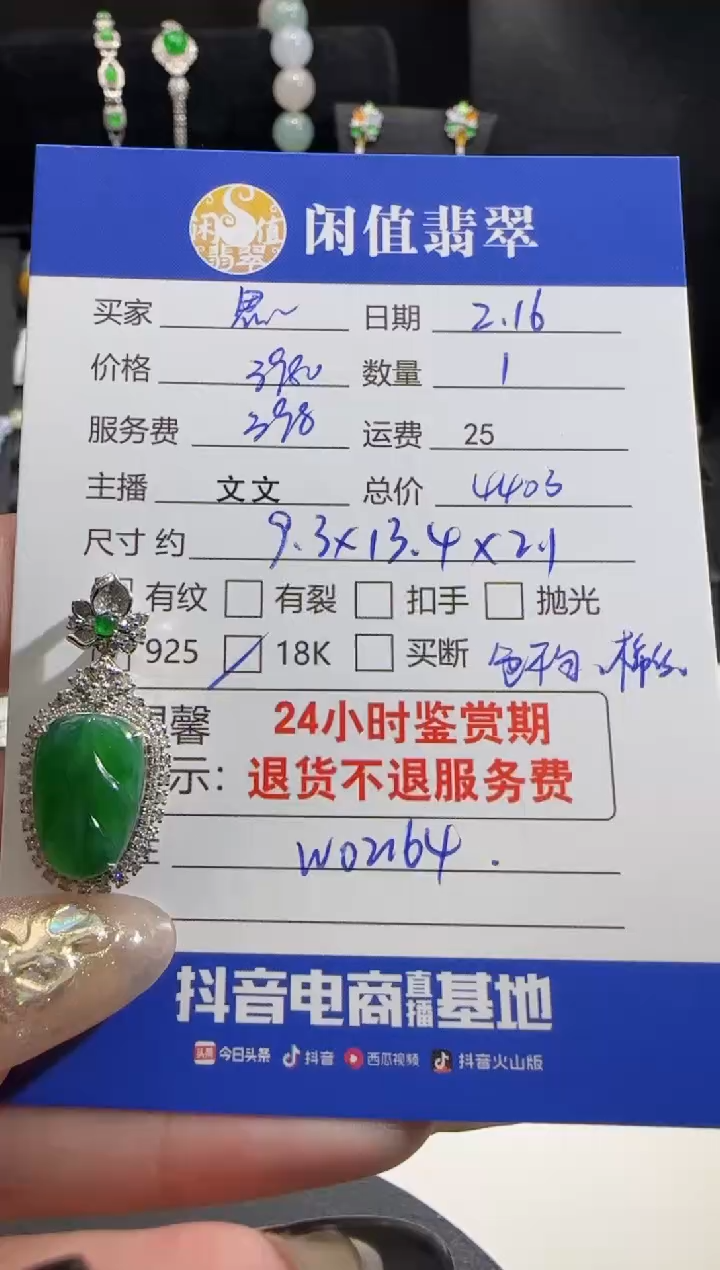 闲值翡翠
闲值翡翠
买家 思 日期 2.16
价格 3980 数量 1
服务费 398 运费 25
主播 文文 总价 4403
尺寸 约 9.3×13.4×2.1
有纹 有裂 扣手 抛光
925 18K 买断 色不匀、棉纹
馨 24小时鉴赏期
示: 退货不退服务费
W02164.
抖音电商直播基地
头条 今日头条 抖音 西瓜视频 抖音火山版